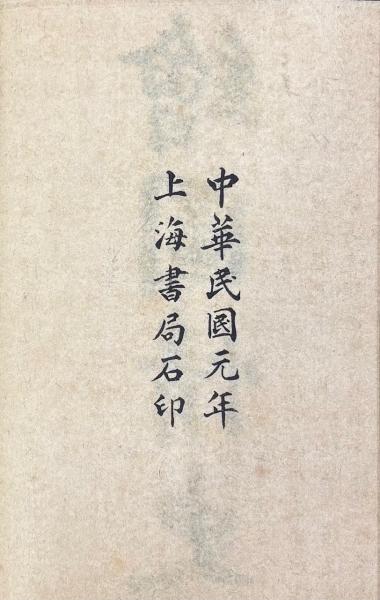 中華民國元年
上海書局石印